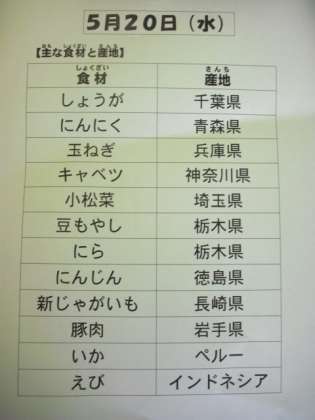 5月20日（水）
【主な食材と産地】
しょくざい さんち
食材 産地
しょうが 千葉県
にんにく 青森県
玉ねぎ 兵庫県
キャベツ 神奈川県
小松菜 埼玉県
豆もやし 栃木県
にら 栃木県
にんじん 徳島県
新じゃがいも 長崎県
豚肉 岩手県
いか ペルー
えび インドネシア